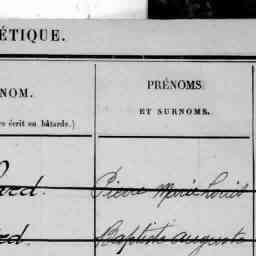 ÉTIQUE.
NOM.
PRÉNOMS
ET SURNOMS.
re écrit en bâtarde.)
ard. Pierre Marie Louis
rd. Baptiste Auguste